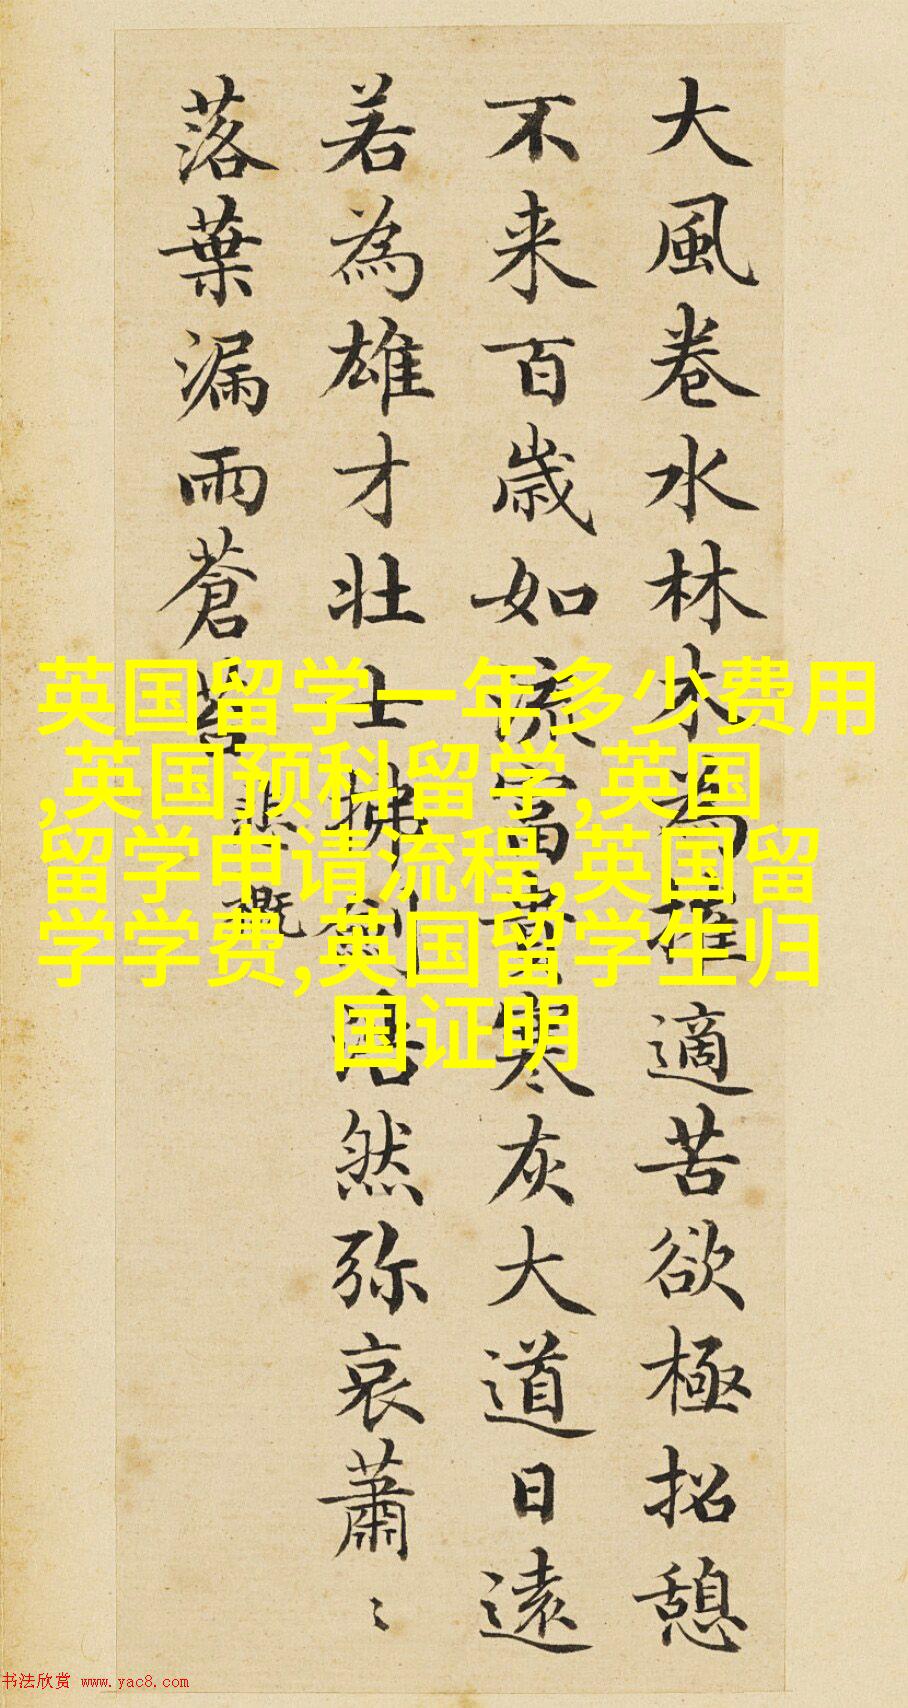 大風卷水林木為摧適苦欲極招憩
不来百歲如流富貴寒灰大道日遠
若為雄才壮士拂劍浩然弥哀蕭〻
落葉漏雨蒼苔
悲慨
英国留学一年多少费用
,英国预科留学,英国
留学申请流程,英国留
学学费,英国留学生归
国证明
书法欣赏 www.yac8.com